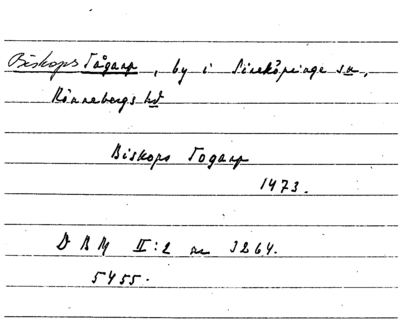 Biskops Tågarp, by i Sireköpinge sn,
Rönnebergs hd
Biskops Togarp
1473.
D B M II:2 nr 3264.
5455.